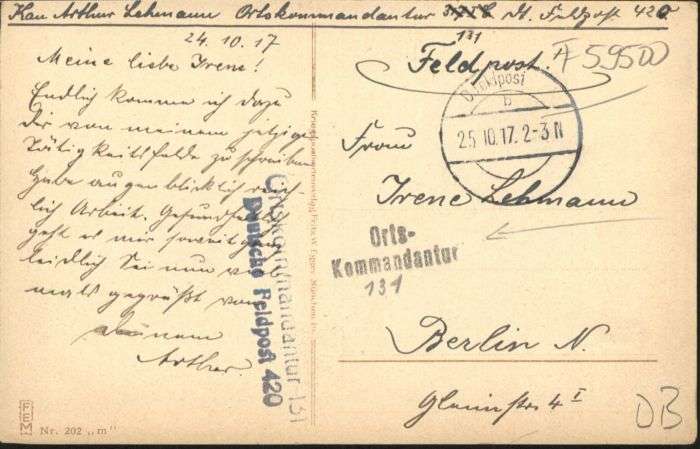 Kan Arthur Lehmann Ortskommandantur D. Feldpost 420
131
24.10.17
Meine liebe Irene!
Endlich komme ich dazu
Dir von meinem jetzigen
Tätigkeitsfelde zu schreiben
Habe augenblicklich reich
lich Arbeit. Gesundheitlich
geht es mir soweit ganz
leidlich Sei nun viel
mals gegrüßt von
Deinem
Arthur.
Ortskommandantur 131
Deutsche Feldpost 420
FEM
Nr. 202 „m"
Feldpost.
59500
Feldpost
b
25.10.17. 2-3 N
Frau
Irene Lehmann
Orts-
Kommandantur
131
Berlin N.
4 I
DB